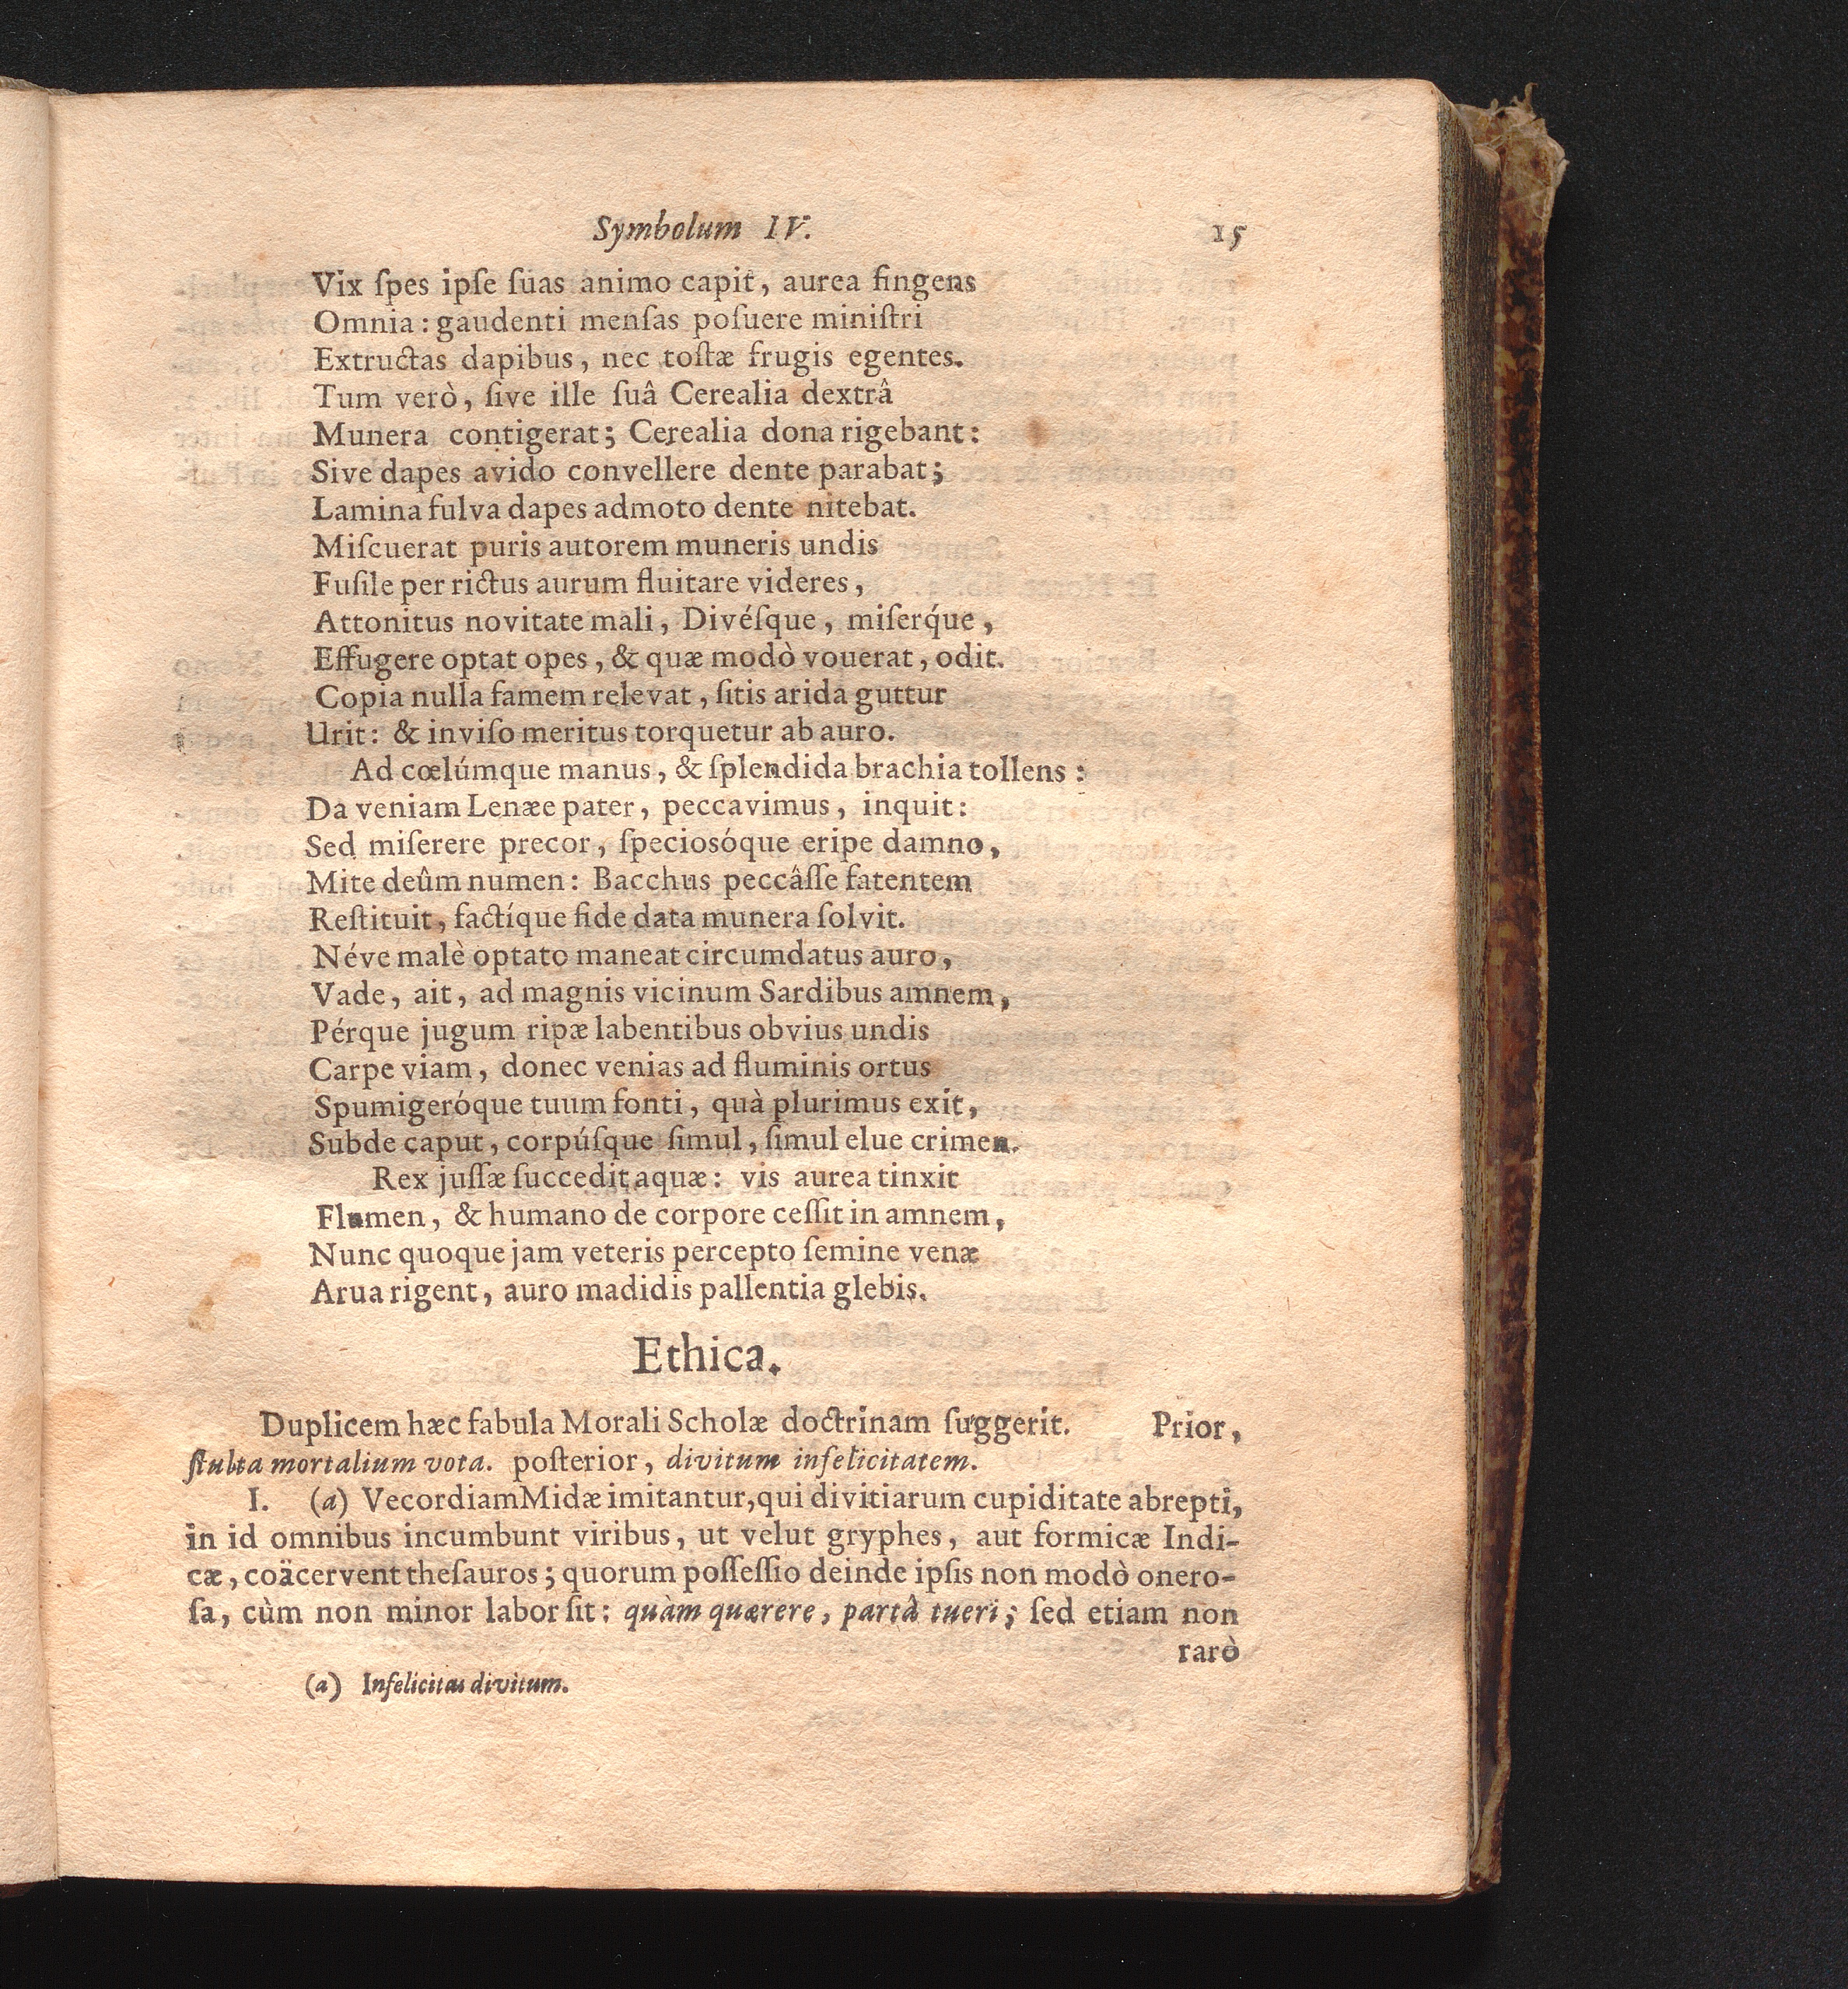 Symbolum IV. 15
Vix ſpes ipſe ſuas animo capit, aurea fingens
Omnia: gaudenti menſas poſuere miniſtri
Extructas dapibus, nec toſtæ frugis egentes.
Tum verò, ſive ille ſuâ Cerealia dextrâ
Munera contigerat; Cerealia dona rigebant:
Sive dapes avido convellere dente parabat;
Lamina fulva dapes admoto dente nitebat.
Miſcuerat puris autorem muneris undis
Fuſile per rictus aurum fluitare videres,
Attonitus novitate mali, Divéſque, miſerq́ue,
Effugere optat opes, & quæ modò vouerat, odit.
Copia nulla famem relevat, ſitis arida guttur
Urit: & inviſo meritus torquetur ab auro.
Ad cœlúmque manus, & ſplendida brachia tollens:
Da veniam Lenæe pater, peccavimus, inquit:
Sed miſerere precor, ſpeciosóque eripe damno,
Mite deûm numen: Bacchus peccâſſe fatentem
Reſtituit, factíque fide data munera ſolvit.
Néve malè optato maneat circumdatus auro,
Vade, ait, ad magnis vicinum Sardibus amnem,
Pérque jugum ripæ labentibus obvius undis
Carpe viam, donec venias ad fluminis ortus
Spumigeróque tuum fonti, quà plurimus exit,
Subde caput, corpúſque ſimul, ſimul elue crimen.
Rex juſſæ ſuccedit aquæ: vis aurea tinxit
Flumen, & humano de corpore ceſſit in amnem,
Nunc quoque jam veteris percepto ſemine venæ
Arua rigent, auro madidis pallentia glebis.
Ethica.
Duplicem hæc fabula Morali Scholæ doctrinam ſuggerit. Prior,
ſtulta mortalium vota. poſterior, divitum infelicitatem.
I. (a) Vecordiam Midæ imitantur, qui divitiarum cupiditate abrepti,
in id omnibus incumbunt viribus, ut velut gryphes, aut formicæ Indi-
cæ, coäcervent theſauros; quorum poſſeſſio deinde ipſis non modò onero-
ſa, cùm non minor labor ſit: quàm quærere, partâ tueri; ſed etiam non
rarò
(a) Infelicitas divitum.